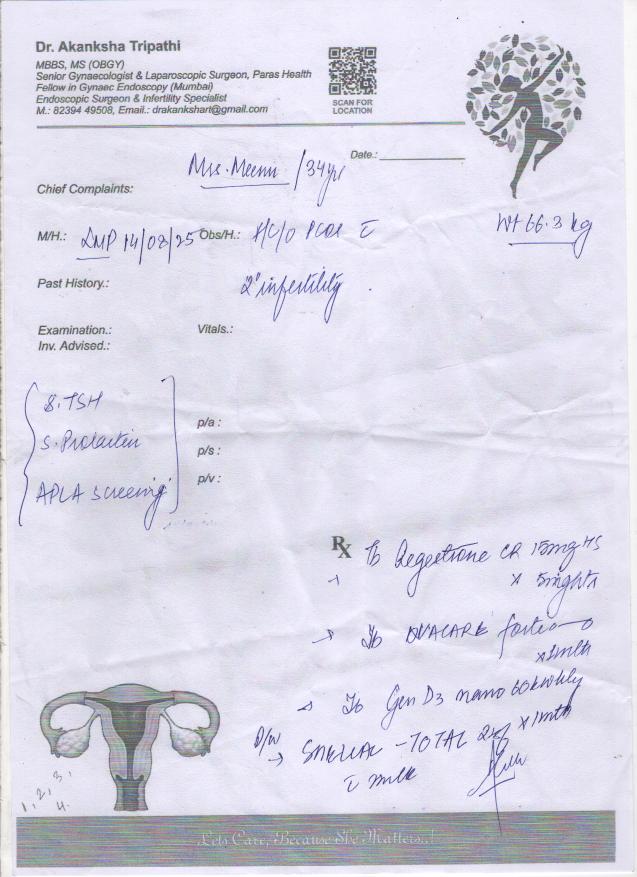 Dr. Akanksha Tripathi
MBBS, MS (OBGY)
Senior Gynaecologist & Laparoscopic Surgeon, Paras Health
Fellow in Gynaec Endoscopy (Mumbai)
Endoscopic Surgeon & Infertility Specialist
M.: 82394 49508, Email.: drakankshart@gmail.com
SCAN FOR
LOCATION
Date.:
Mrs. Meenu / 34 yrs
Chief Complaints:
M/H.: LMP 14/08/25 Obs/H.: H/C/O PCOS c̄
Wt 66.3 kg
Past History.: 2° infertility.
Examination.: Vitals.:
Inv. Advised.:
S. TSH
S. Prolactin
APLA screening
p/a :
p/s :
p/v :
Rx Tb Regestrone CR 15mg HS
x 5nights
→ Tb OVACARE forte
x 1mth
Tb Gen D3 nano 60k wkly
x 1mth
→ - TOTAL
c̄ milk
1. 2. 3. 4.
Lets Care, Because She Matters..!